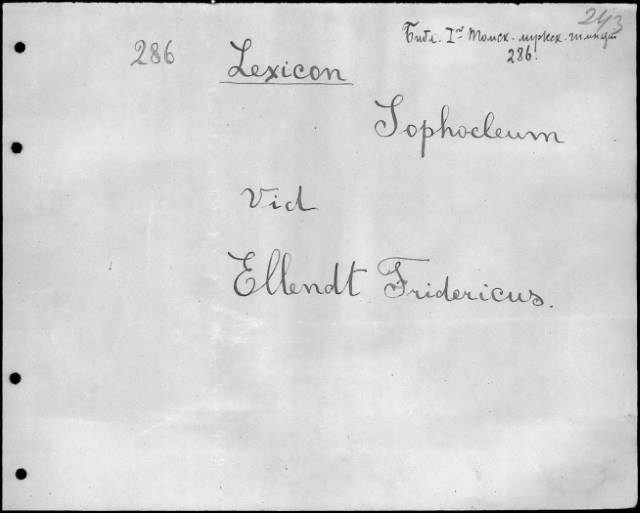 243
Библ. Iой Томск. мужск. гимназ.
286.
286
Lexicon
Sophocleum
Vid
Ellendt Fridericus.